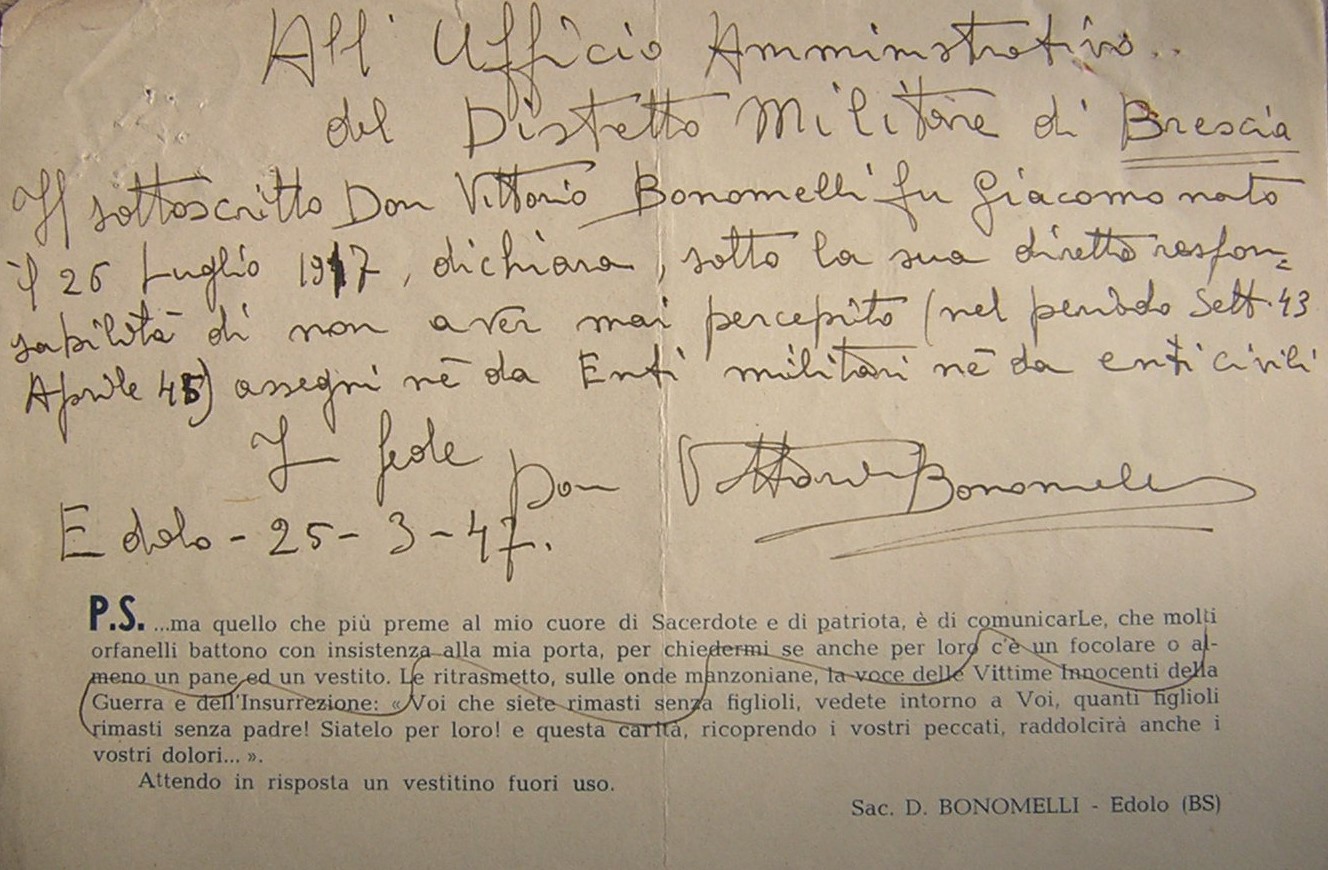 All' Ufficio Amministrativo..
del Distretto Militare di Brescia
Il sottoscritto Don Vittorio Bonomelli fu Giacomo nato
il 26 Luglio 1917, dichiara, sotto la sua diretta respon=
sabilità di non aver mai percepito (nel periodo Sett. 43
Aprile 45) assegni nè da Enti militari nè da enti civili
In fede
Don Vittorio Bonomelli
Edolo - 25 - 3 - 47.
P.S. ...ma quello che più preme al mio cuore di Sacerdote e di patriota, è di comunicarLe, che molti
orfanelli battono con insistenza alla mia porta, per chiedermi se anche per loro c'è un focolare o al-
meno un pane ed un vestito. Le ritrasmetto, sulle onde manzoniane, la voce delle Vittime Innocenti della
Guerra e dell'Insurrezione: « Voi che siete rimasti senza figlioli, vedete intorno a Voi, quanti figlioli
rimasti senza padre! Siatelo per loro! e questa carità, ricoprendo i vostri peccati, raddolcirà anche i
vostri dolori... ».
Attendo in risposta un vestitino fuori uso.
Sac. D. BONOMELLI - Edolo (BS)